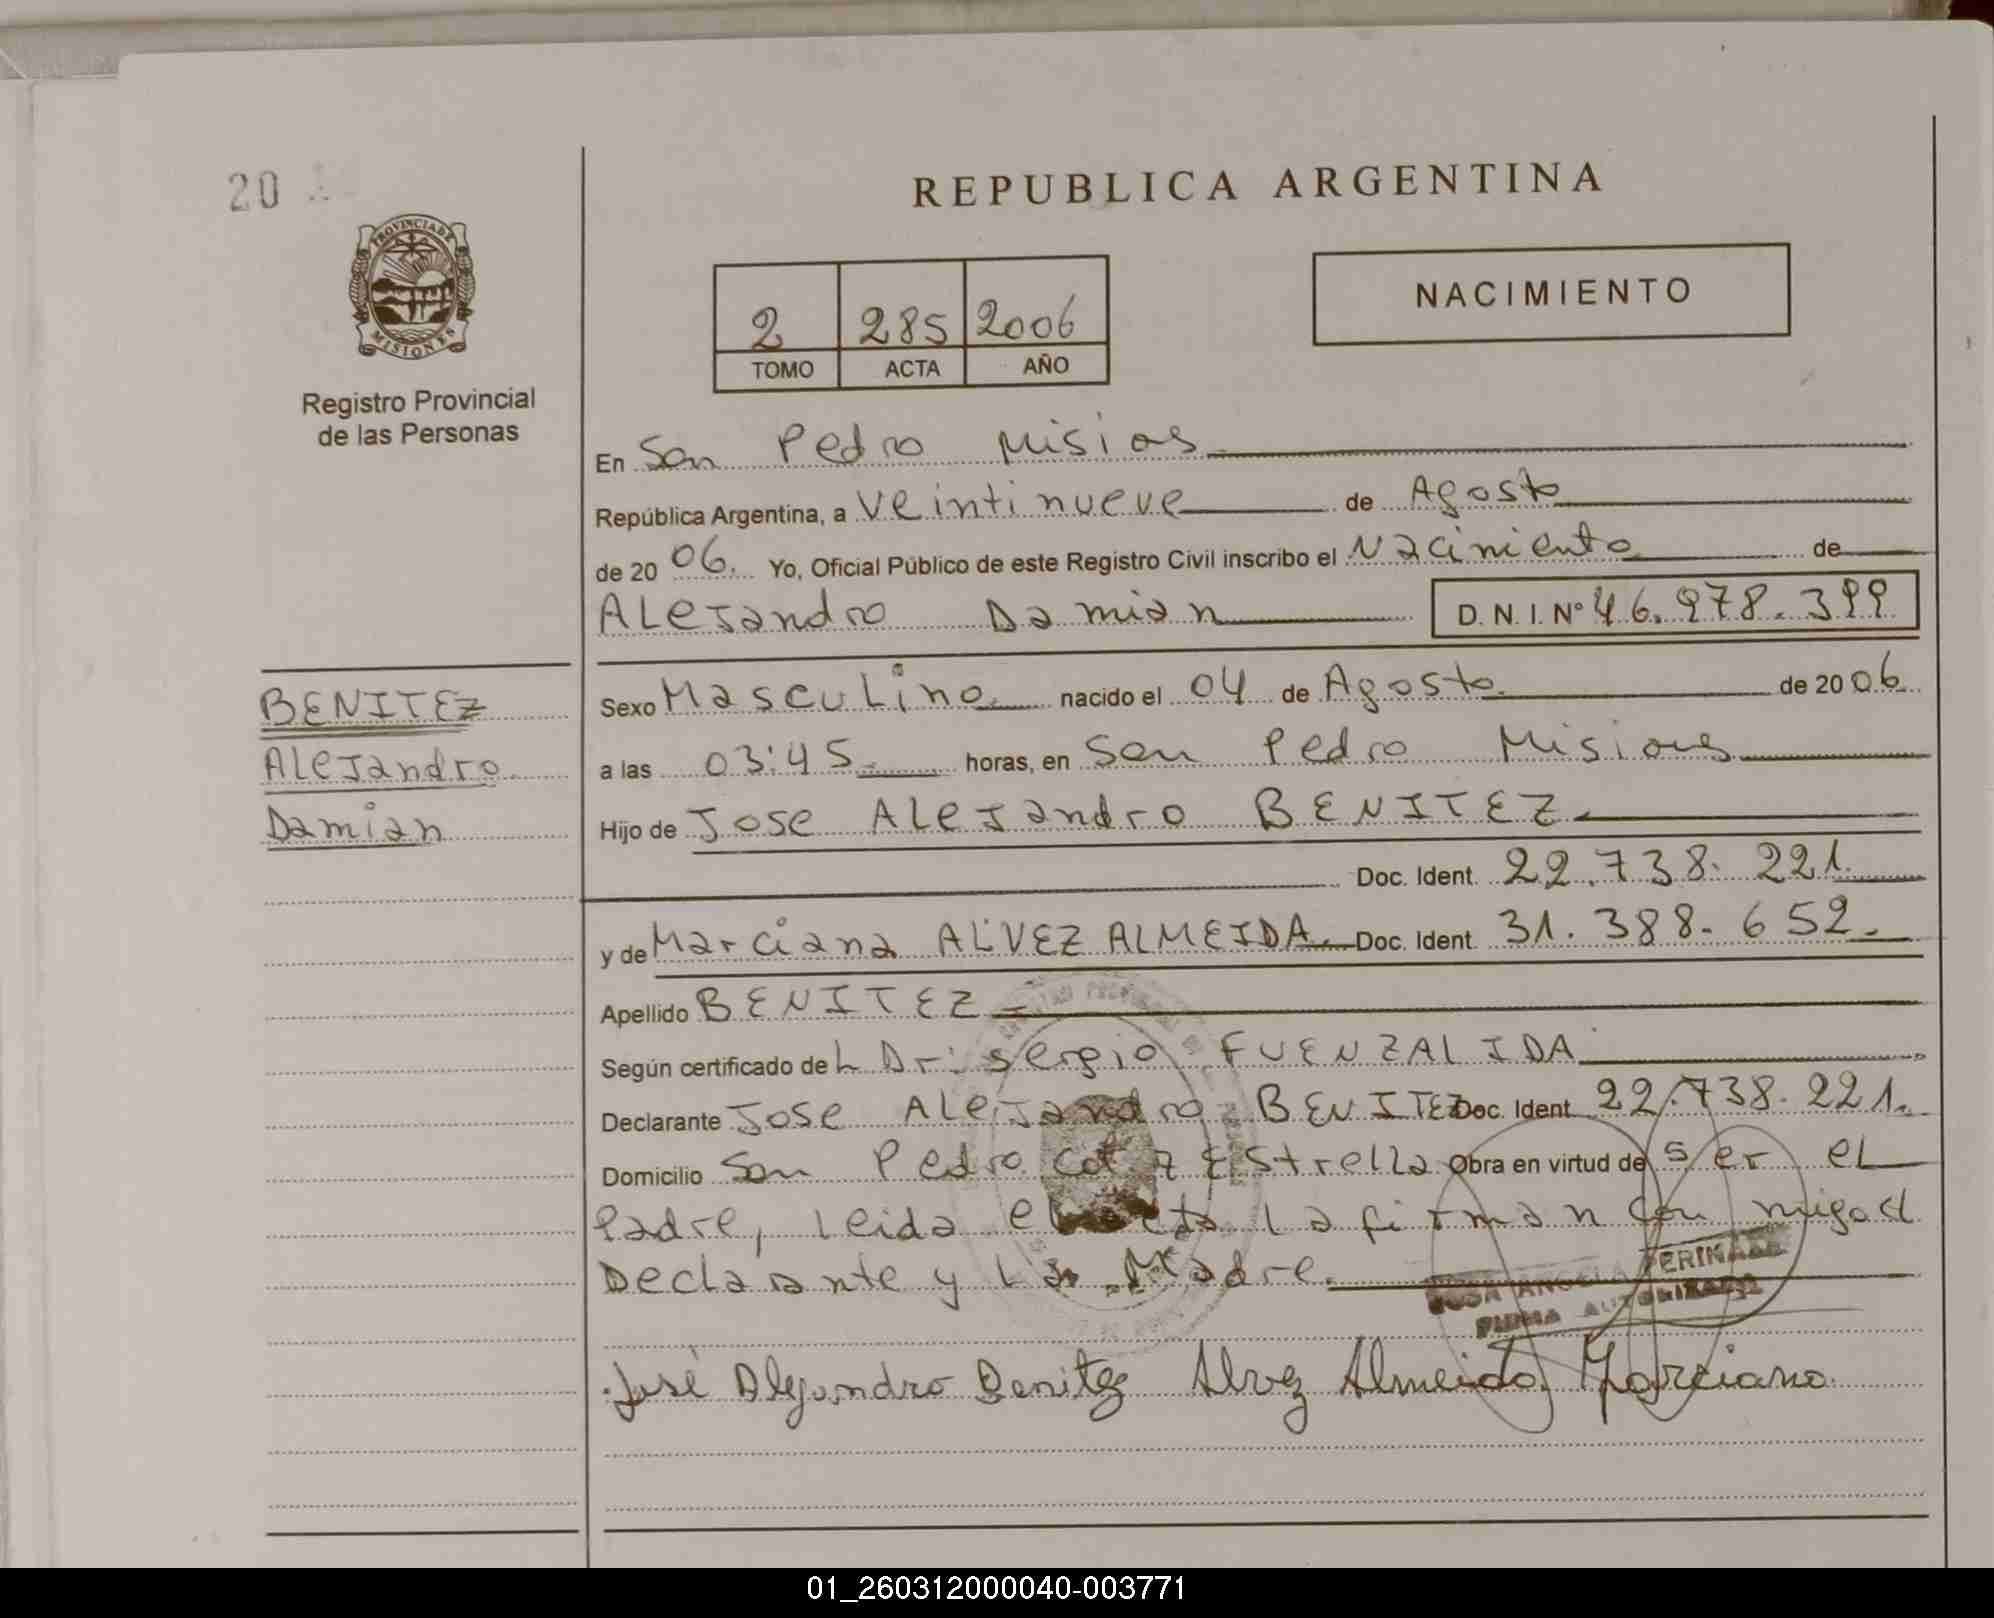 20
PROVINCIA DE
MISIONES
Registro Provincial
de las Personas
REPUBLICA ARGENTINA
2 285 2006
TOMO ACTA AÑO
NACIMIENTO
En San Pedro Misios
República Argentina, a veintinueve de Agosto
de 20 06. Yo, Oficial Público de este Registro Civil inscribo el Nacimiento de
ALeJandro Damian D. N. I. Nº 46.978.399
BENITEZ
ALeJandro
Damian
Sexo MascuLino nacido el 04 de Agosto de 20 06.
a las 03:45 horas, en San Pedro Misiones
Hijo de Jose ALeJandro BENITEZ
Doc. Ident. 22.738.221.
y de Marciana ALVEZ ALMEIDA. Doc. Ident. 31.388.652.
Apellido BENITEZ
Según certificado de L Dr: sergio FUENZALIDA
Declarante Jose ALeJandro BENITEZ Doc. Ident. 22.738.221.
Domicilio San Pedro Estrella Obra en virtud de ser eL
Padre, Leida La firman con migo el
DecLarante y La Madre.
FIRMA AUTORIZADA
José Alejandro Benitez Alvez Almeida Marciana
01_260312000040-003771